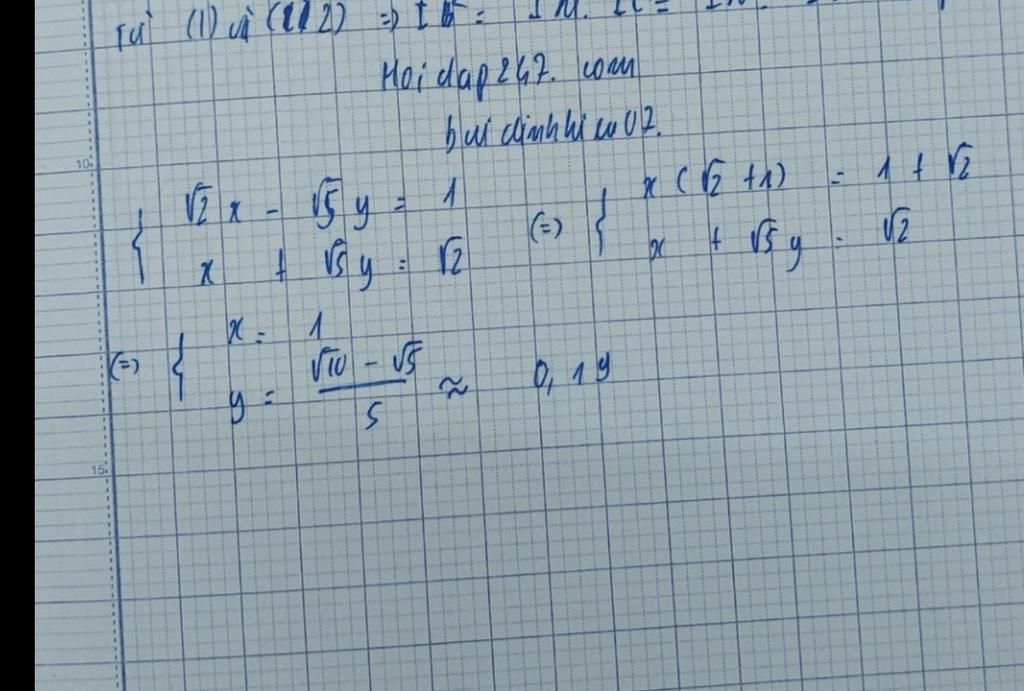 Từ (1) và (2) => I
Hoidap247. com
buidinhhieu02.
10
{ √2 x - √5 y = 1 (=) { x (√2 + 1) = 1 + √2
x + √5 y = √2 x + √5 y = √2
(=) { x = 1
y = (√10 - √5)/5 ≈ 0,19
15